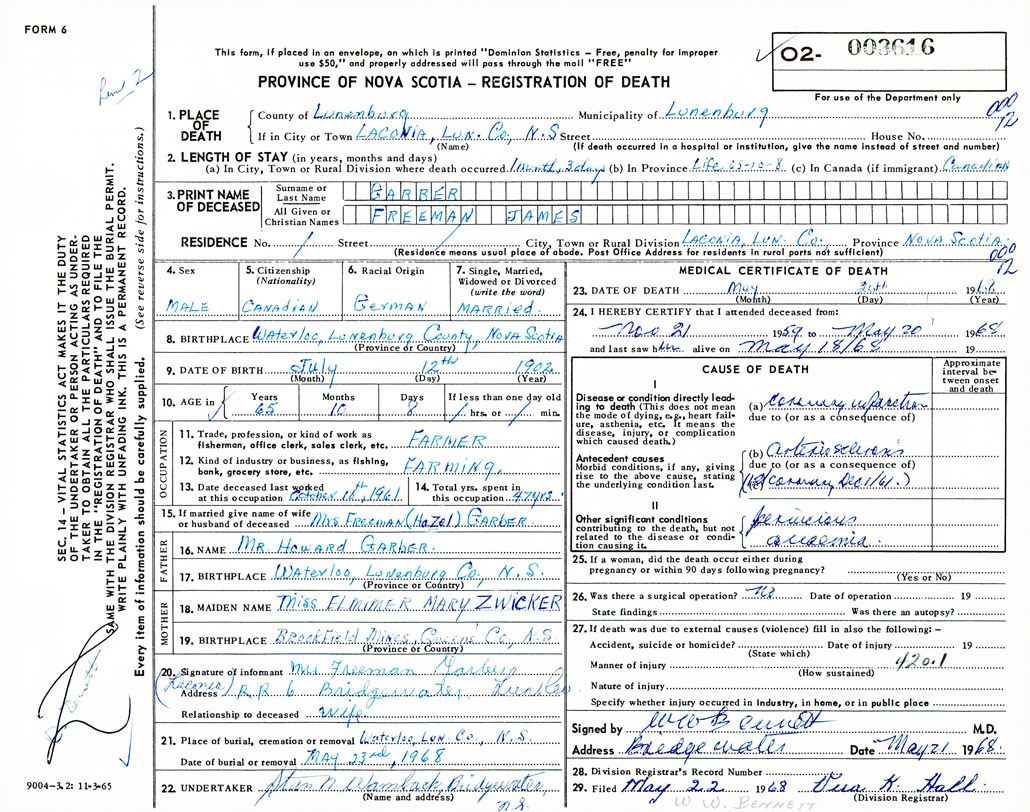 FORM 6
This form, if placed in an envelope, on which is printed "Dominion Statistics – Free, penalty for improper
use $50," and properly addressed will pass through the mail "FREE"
PROVINCE OF NOVA SCOTIA – REGISTRATION OF DEATH
02- 003616
For use of the Department only
000
12
1. PLACE OF DEATH
County of Lunenburg Municipality of Lunenburg
If in City or Town LACONIA, LUN. CO, N.S Street House No.
(Name) (If death occurred in a hospital or institution, give the name instead of street and number)
2. LENGTH OF STAY (in years, months and days)
(a) In City, Town or Rural Division where death occurred 1 month, 3 days (b) In Province Life 65-10-8 (c) In Canada (if immigrant) Canadian
3. PRINT NAME OF DECEASED
Surname or Last Name GARBER
All Given or Christian Names FREEMAN JAMES
RESIDENCE No. / Street / City, Town or Rural Division LACONIA, LUN. CO., Province NOVA SCOTIA.
(Residence means usual place of abode. Post Office Address for residents in rural parts not sufficient)
000
12
4. Sex
MALE
5. Citizenship
(Nationality)
CANADIAN
6. Racial Origin
GERMAN
7. Single, Married,
Widowed or Divorced
(write the word)
MARRIED.
8. BIRTHPLACE Waterloo, Lunenburg County, Nova Scotia
(Province or Country)
9. DATE OF BIRTH July 12th 1902
(Month) (Day) (Year)
10. AGE in
Years Months Days If less than one day old
65 10 8 / hrs. or / min.
OCCUPATION
11. Trade, profession, or kind of work as
fisherman, office clerk, sales clerk, etc. FARMER
12. Kind of industry or business, as fishing,
bank, grocery store, etc. FARMING,
13. Date deceased last worked
at this occupation October 18th, 1961.
14. Total yrs. spent in
this occupation 47 yrs.
15. If married give name of wife
or husband of deceased Mrs Freeman (Hazel) Garber.
FATHER
16. NAME MR. HOWARD GARBER.
17. BIRTHPLACE Waterloo, Lunenburg Co., N.S.
(Province or Country)
MOTHER
18. MAIDEN NAME Miss ELMIMER MARY ZWICKER
19. BIRTHPLACE Brookfield Mines, Queens Co., N.S.
(Province or Country)
20. Signature of informant Mrs Freeman Garber
(Laconia)
Address R.R 6 Bridgewater,
Relationship to deceased wife.
21. Place of burial, cremation or removal Waterloo, Lun. Co., N.S.
Date of burial or removal MAY 23rd, 1968
22. UNDERTAKER Bridgewater,
(Name and address)
N.S.
MEDICAL CERTIFICATE OF DEATH
23. DATE OF DEATH May 20th 1968
(Month) (Day) (Year)
24. I HEREBY CERTIFY that I attended deceased from:
Nov 21 1959 to May 20 1968
and last saw him alive on May 18/68 19
CAUSE OF DEATH
Approximate
interval be-
tween onset
and death
I
Disease or condition directly lead-
ing to death (This does not mean
the mode of dying, e.g., heart fail-
ure, asthenia, etc. It means the
disease, injury, or complication
which caused death.)
(a) Coronary infarction
due to (or as a consequence of)
Antecedent causes
Morbid conditions, if any, giving
rise to the above cause, stating
the underlying condition last.
(b) Arteriosclerosis
due to (or as a consequence of)
(c) Coronary Dec 1/61.)
II
Other significant conditions
contributing to the death, but not
related to the disease or condi-
tion causing it.
pernicious
anaemia.
25. If a woman, did the death occur either during
pregnancy or within 90 days following pregnancy?
(Yes or No)
26. Was there a surgical operation? No Date of operation 19
State findings Was there an autopsy?
27. If death was due to external causes (violence) fill in also the following: –
Accident, suicide or homicide? Date of injury 19
(State which)
Manner of injury 420.1
(How sustained)
Nature of injury
Specify whether injury occurred in industry, in home, or in public place
Signed by W W Bennett M.D.
Address Bridgewater Date May 21 1968.
28. Division Registrar's Record Number
29. Filed May 22 1968 Vera K. Hall
(Division Registrar)
W. W. BENNETT
SEC. 14 – VITAL STATISTICS ACT MAKES IT THE DUTY
OF THE UNDERTAKER OR PERSON ACTING AS UNDER-
TAKER TO OBTAIN ALL THE PARTICULARS REQUIRED
IN THE "REGISTRATION OF DEATH" AND TO FILE THE
SAME WITH THE DIVISION REGISTRAR WHO SHALL ISSUE THE BURIAL PERMIT.
WRITE PLAINLY WITH UNFADING INK. THIS IS A PERMANENT RECORD.
Every item of information should be carefully supplied. (See reverse side for instructions.)
9004–3.2: 11-3-65